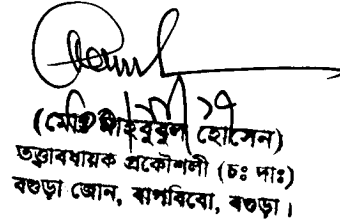 (মোঃ মাহবুবুল হোসেন)
তত্ত্বাবধায়ক প্রকৌশলী (চঃ দাঃ)
বগুড়া জোন, বাপবিবো, বগুড়া।